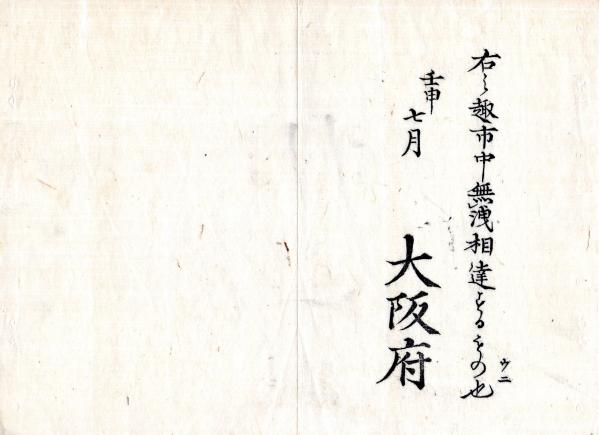 右之趣市中無洩相達するもの也
ウ二
壬申
七月
大阪府